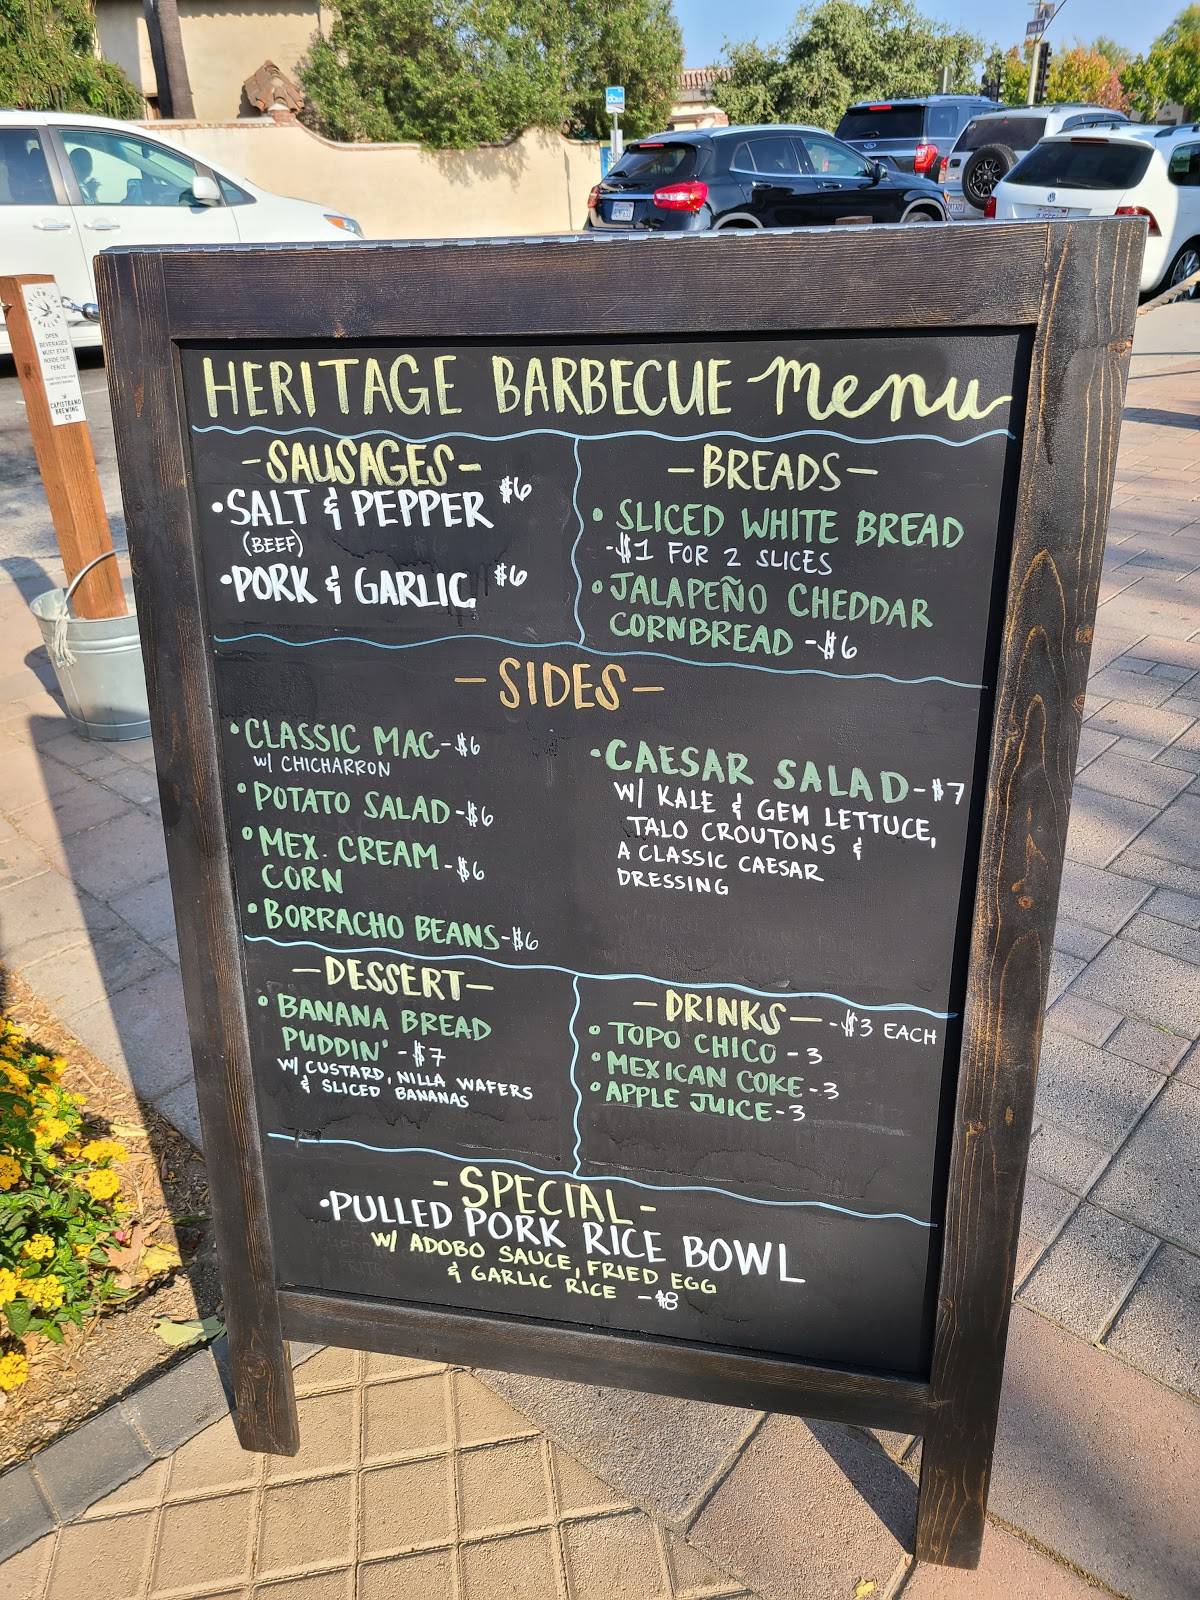 HERITAGE BARBECUE Menu
-SAUSAGES-
•SALT & PEPPER $6
(BEEF)
•PORK & GARLIC $6
-BREADS-
• SLICED WHITE BREAD
-$1 FOR 2 SLICES
• JALAPEÑO CHEDDAR
CORNBREAD -$6
-SIDES-
•CLASSIC MAC-$6
W/ CHICHARRON
•POTATO SALAD-$6
•MEX. CREAM
CORN -$6
•BORRACHO BEANS-$6
•CAESAR SALAD-$7
W/ KALE & GEM LETTUCE,
TALO CROUTONS &
A CLASSIC CAESAR
DRESSING
-DESSERT-
• BANANA BREAD
PUDDIN' -$7
W/ CUSTARD, NILLA WAFERS
& SLICED BANANAS
-DRINKS- -$3 EACH
• TOPO CHICO -3
•MEXICAN COKE-3
•APPLE JUICE-3
-SPECIAL-
•PULLED PORK RICE BOWL
W/ ADOBO SAUCE, FRIED EGG
& GARLIC RICE -$8
OPEN
BEVERAGES
MUST STAY
INSIDE OUR
FENCE
CAPISTRANO
BREWING
CO